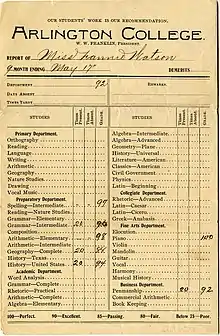 OUR STUDENTS' WORK IS OUR RECOMMENDATION.
ARLINGTON COLLEGE.
W. W. FRANKLIN, PRESIDENT.
REPORT OF Miss Fannie Watson
9 MONTH ENDING May 17 DEMERITS
DEPORTMENT 92
DAYS ABSENT
TIMES TARDY
REWARDS
STUDIES
GRADE
Primary Department.
Orthography
Reading
Language
Writing
Arithmetic
Geography
Nature Studies
Drawing
Vocal Music
Preparatory Department.
Spelling—Intermediate 97
Reading—Nature Studies
Grammar—Elementary
Grammar—Intermediate 20
Composition
Arithmetic—Elementary 98
Arithmetic—Intermediate
Geography—Complete 20
History—Texas
History—United States 20 94
Academic Department.
Word Analysis
Grammar—Complete
Rhetoric—Practical
Arithmetic—Complete
Algebra—Elementary
STUDIES
GRADE
Algebra—Intermediate
Algebra—Advanced
Geometry—Plane
History—Universal
Literature—American
Classics—American
Civil Government
Physics
Latin—Beginning
Collegiate Department.
Rhetoric—Advanced
Latin—Cæsar
Latin—Cicero
Greek—Anabasis
Fine Arts Department.
Elocution
Piano 100
Violin
Mandolin
Guitar
Vocal
Harmony
Musical History
Business Department.
Penmanship 20 92
Commercial Arithmetic
Book Keeping
100—Perfect. 90—Excellent. 85—Passing. 80—Faulty. Below 75—Poor.